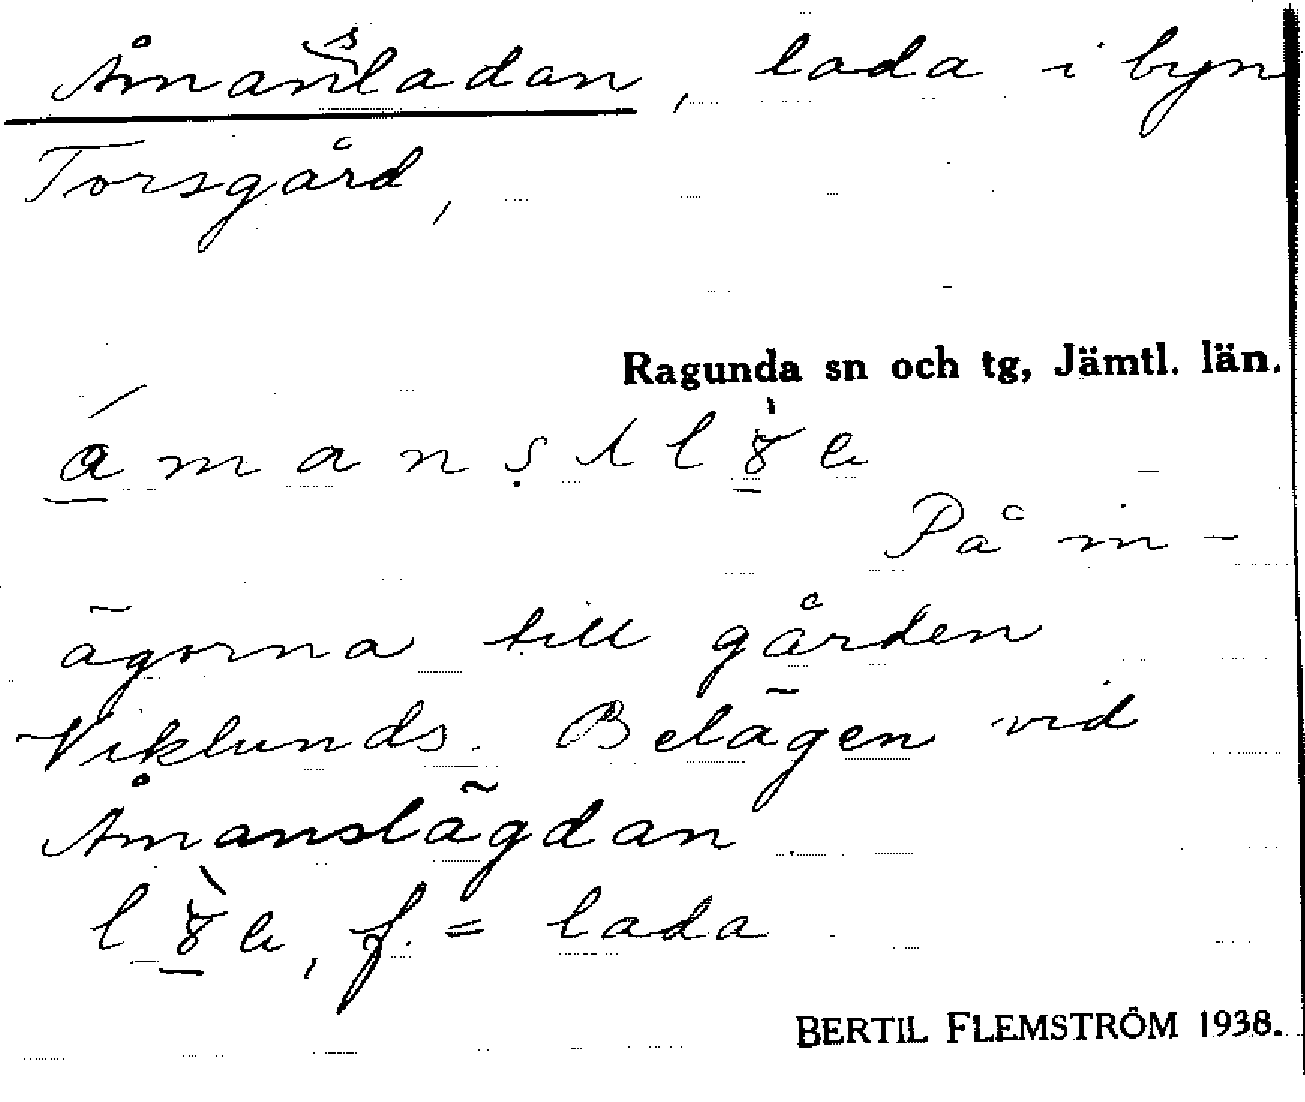 Åmansladan, lada i byn
Torsgård,
Ragunda sn och tg, Jämtl. län.
På in-
ägorna till gården
Viklunds. Belägen vid
Åmanslägdan
f. = lada
BERTIL FLEMSTRÖM 1938.